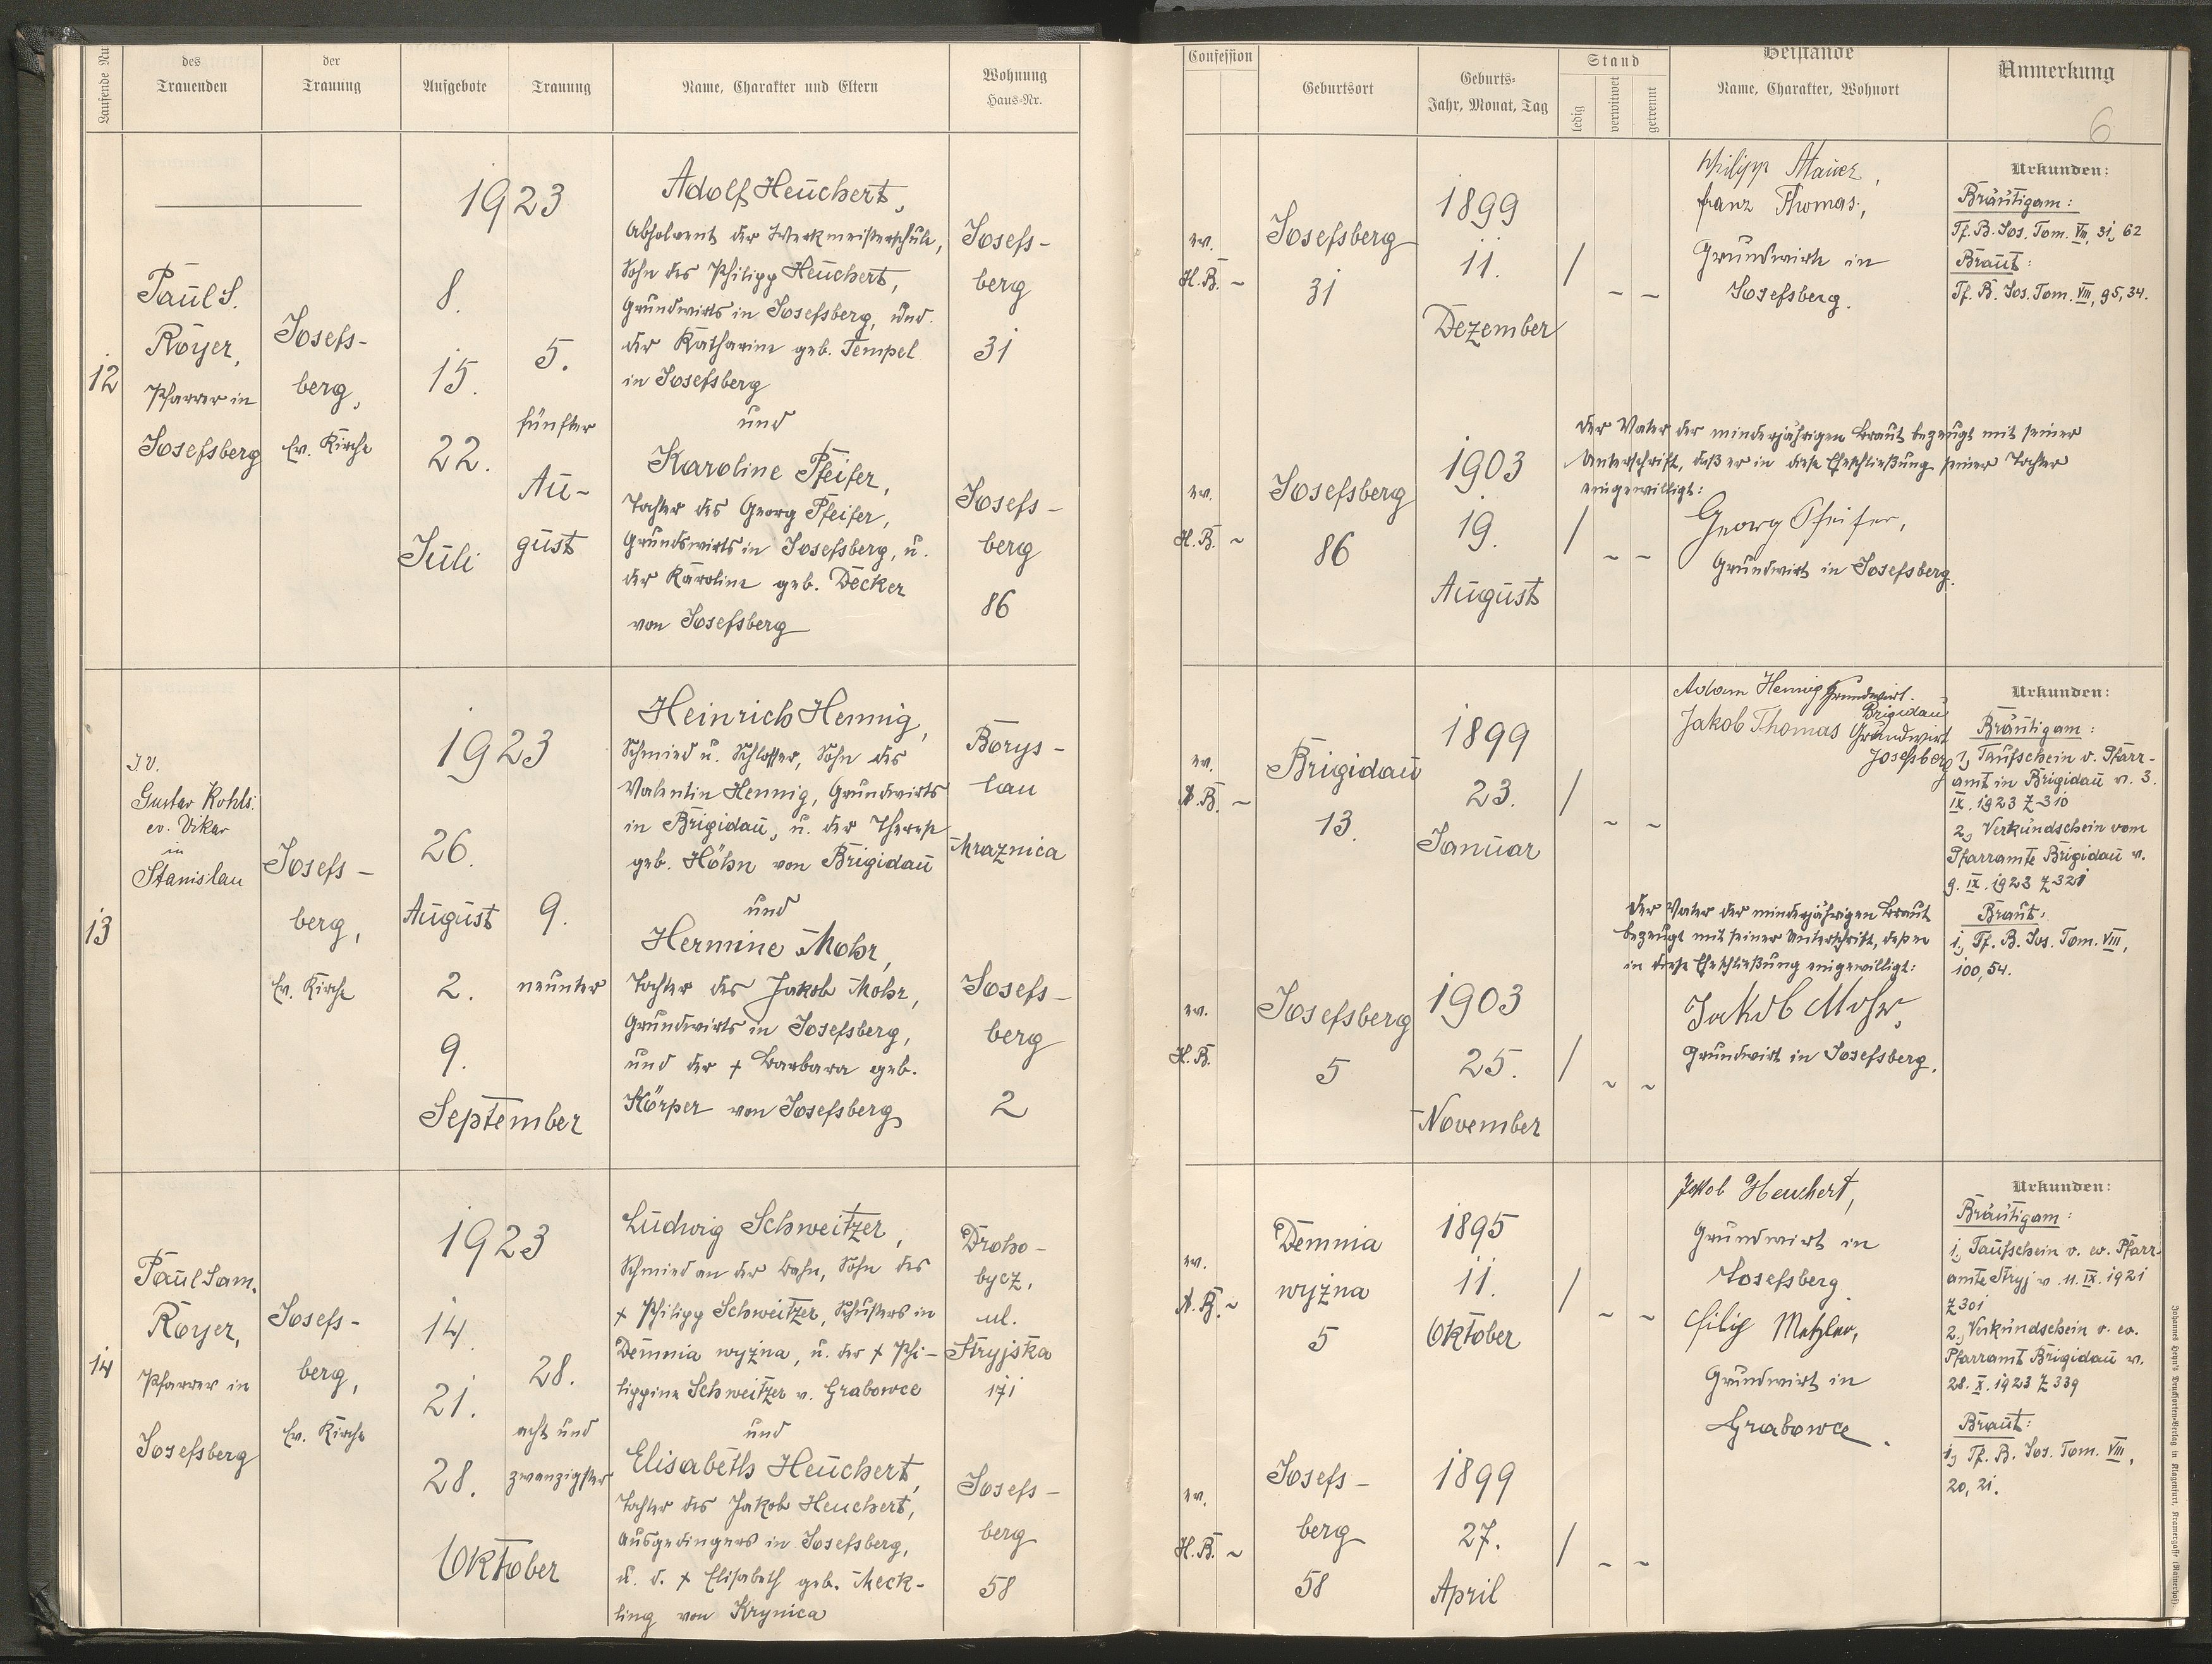 Laufende Nu
des
Trauenden
der
Trauung
Aufgebote
Trauung
Name, Charakter und Eltern
Wohnung
Haus-Nr.
Confession
Geburtsort
Geburts-
Jahr, Monat, Tag
Stand
ledig
verwitwet
getrennt
Beistände
Name, Charakter, Wohnort
Anmerkung
6
12
Paul S.
Royer,
Pfarrer in
Josefsberg
Josefs-
berg,
Ev. Kirche
1923
8.
15.
22.
Juli
5.
fünfter
Au-
gust
Adolf Heuchert,
Absolvent der Werkmeisterschule,
Sohn des Philipp Heuchert,
Grundwirts in Josefsberg, und
der Katharine geb. Tempel
in Josefsberg
und
Karoline Pfeifer,
Tochter des Georg Pfeifer,
Grundwirts in Josefsberg, u.
der Karoline geb. Decker
von Josefsberg
Josefs-
berg
31
Josefs-
berg
86
ev.
H.B. ~
Josefsberg
31
1899
11.
Dezember
/ ~ ~
Philipp Mauer,
Franz Thomas,
Grundwirte in
Josefsberg.
Urkunden:
Bräutigam:
Tf. B. Jos. Tom. VII, 31, 62
Braut:
Tf. B. Jos. Tom. VIII, 95, 34.
ev.
H.B. ~
Josefsberg
86
1903
19.
August
/ ~ ~
Der Vater der minderjährigen Braut bezeugt mit seiner
Unterschrift, daß er in diese Eheschließung seiner Tochter
eingewilligt:
Georg Pfeifer,
Grundwirt in Josefsberg.
13
I.V.
Gustav Kohls
ev. Vikar
in
Stanislau
Josefs-
berg,
Ev. Kirche
1923
26.
August
2.
9.
September
9.
neunter
Heinrich Hennig,
Schmied u. Schlosser, Sohn des
Valentin Hennig, Grundwirts
in Brigidau, u. der Therese
geb. Höhn von Brigidau
und
Hermine Mohr,
Tochter des Jakob Mohr,
Grundwirts in Josefsberg,
und der + Barbara geb.
Körper von Josefsberg
Borys-
lau
Mraznica
Josefs-
berg
2
ev.
A.B. ~
Brigidau
13
1899
23.
Januar
/ ~ ~
Adam Hennig Grundwirt.
Brigidau
Jakob Thomas Grundwirt
Josefsberg
Urkunden:
Bräutigam:
1, Taufschein v. Pfarr-
amt in Brigidau v. 3.
IX. 1923 Z 310
2, Verkündschein vom
Pfarramte Brigidau v.
9. IX. 1923 Z 321
Braut:
1, Tf. B. Jos. Tom. VIII,
100, 54.
ev.
H.B.
Josefsberg
5
1903
25.
November
/ ~ ~
Der Vater der minderjährigen Braut
bezeugt mit seiner Unterschrift, daß er
in diese Eheschließung eingewilligt:
Jakob Mohr,
Grundwirt in Josefsberg.
14
Paul Sam.
Royer,
Pfarrer in
Josefsberg
Josefs-
berg,
Ev. Kirche
1923
14.
21.
28.
Oktober
28.
acht und
zwanzigster
Ludwig Schweitzer,
Schmied an der Bahn, Sohn des
+ Philipp Schweitzer, Schusters in
Demnia wyżna, u. der + Phi-
lippine Schweitzer v. Grabowce
und
Elisabeth Heuchert,
Tochter des Jakob Heuchert,
Ausgedingers in Josefsberg,
u. d. + Elisabeth geb. Meck-
ling von Krynica
Droho-
bycz,
ul.
Stryjska
171
Josefs-
berg
58
ev.
A.B. ~
Demnia
wyżna
5
1895
11.
Oktober
/ ~ ~
Jakob Heuchert,
Grundwirt in
Josefsberg.
Filip Metzler,
Grundwirt in
Grabowce.
Urkunden:
Bräutigam:
1, Taufschein v. ev. Pfarr-
amte Stryj v. 11. IX. 1921
Z 301
2, Verkündschein v. ev.
Pfarramt Brigidau v.
28. X. 1923 Z 339
Braut:
1, Tf. B. Jos. Tom. VIII,
20, 21.
ev.
H.B. ~
Josefs-
berg
58
1899
27.
April
/ ~ ~
Johannes Heyn's Drucksorten-Verlag in Klagenfurt, Kramergasse (Rainerhof).